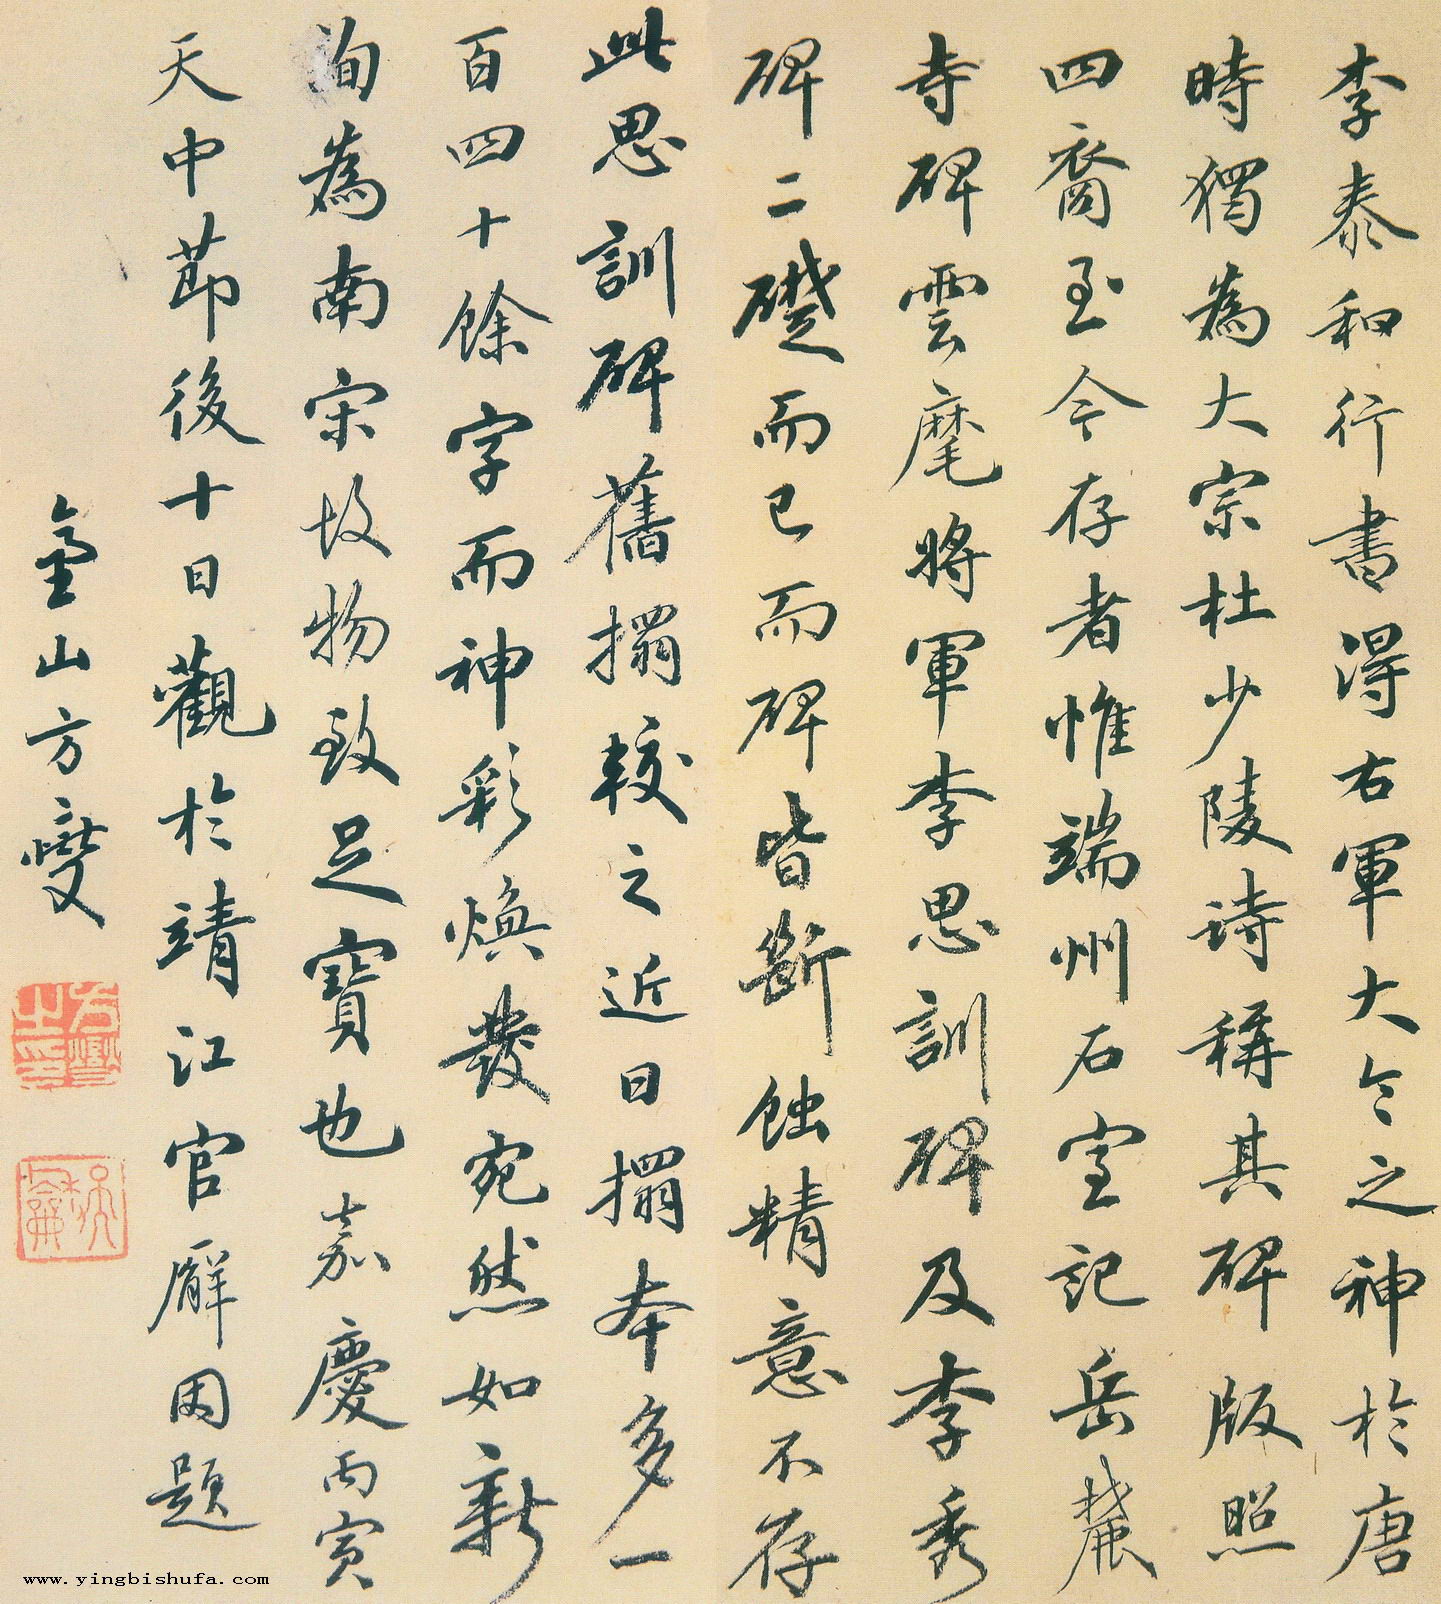 李泰和行書得右軍大令之神於唐
時獨為大宗杜少陵詩稱其碑版照
四裔至今存者惟端州石室記岳麓
寺碑雲麾將軍李思訓碑及李秀
碑二礎而已而碑皆斷蝕精意不存
此思訓碑舊搨較之近日搨本多一
百四十餘字而神彩煥發宛然如新
洵為南宋故物致足寶也嘉慶丙寅
天中節後十日觀於靖江官廨因題
金山方燮
方燮之印
www.yingbishufa.com